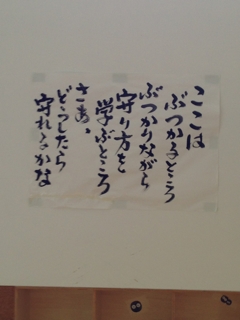 ここは
ぶつかるところ
ぶつかりながら
守り方を
学ぶところ
さあ、
どうしたら
守れるかな